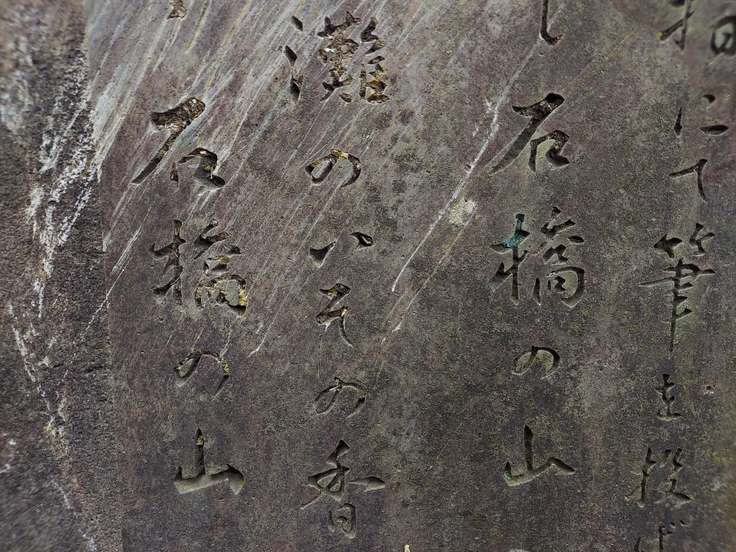 にて筆を投
し石橋の山
灘のいその香
石橋の山